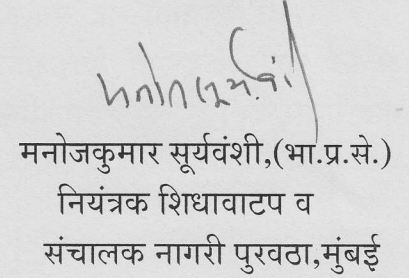 मनोजकुमार सूर्यवंशी,(भा.प्र.से.)
नियंत्रक शिधावाटप व
संचालक नागरी पुरवठा,मुंबई